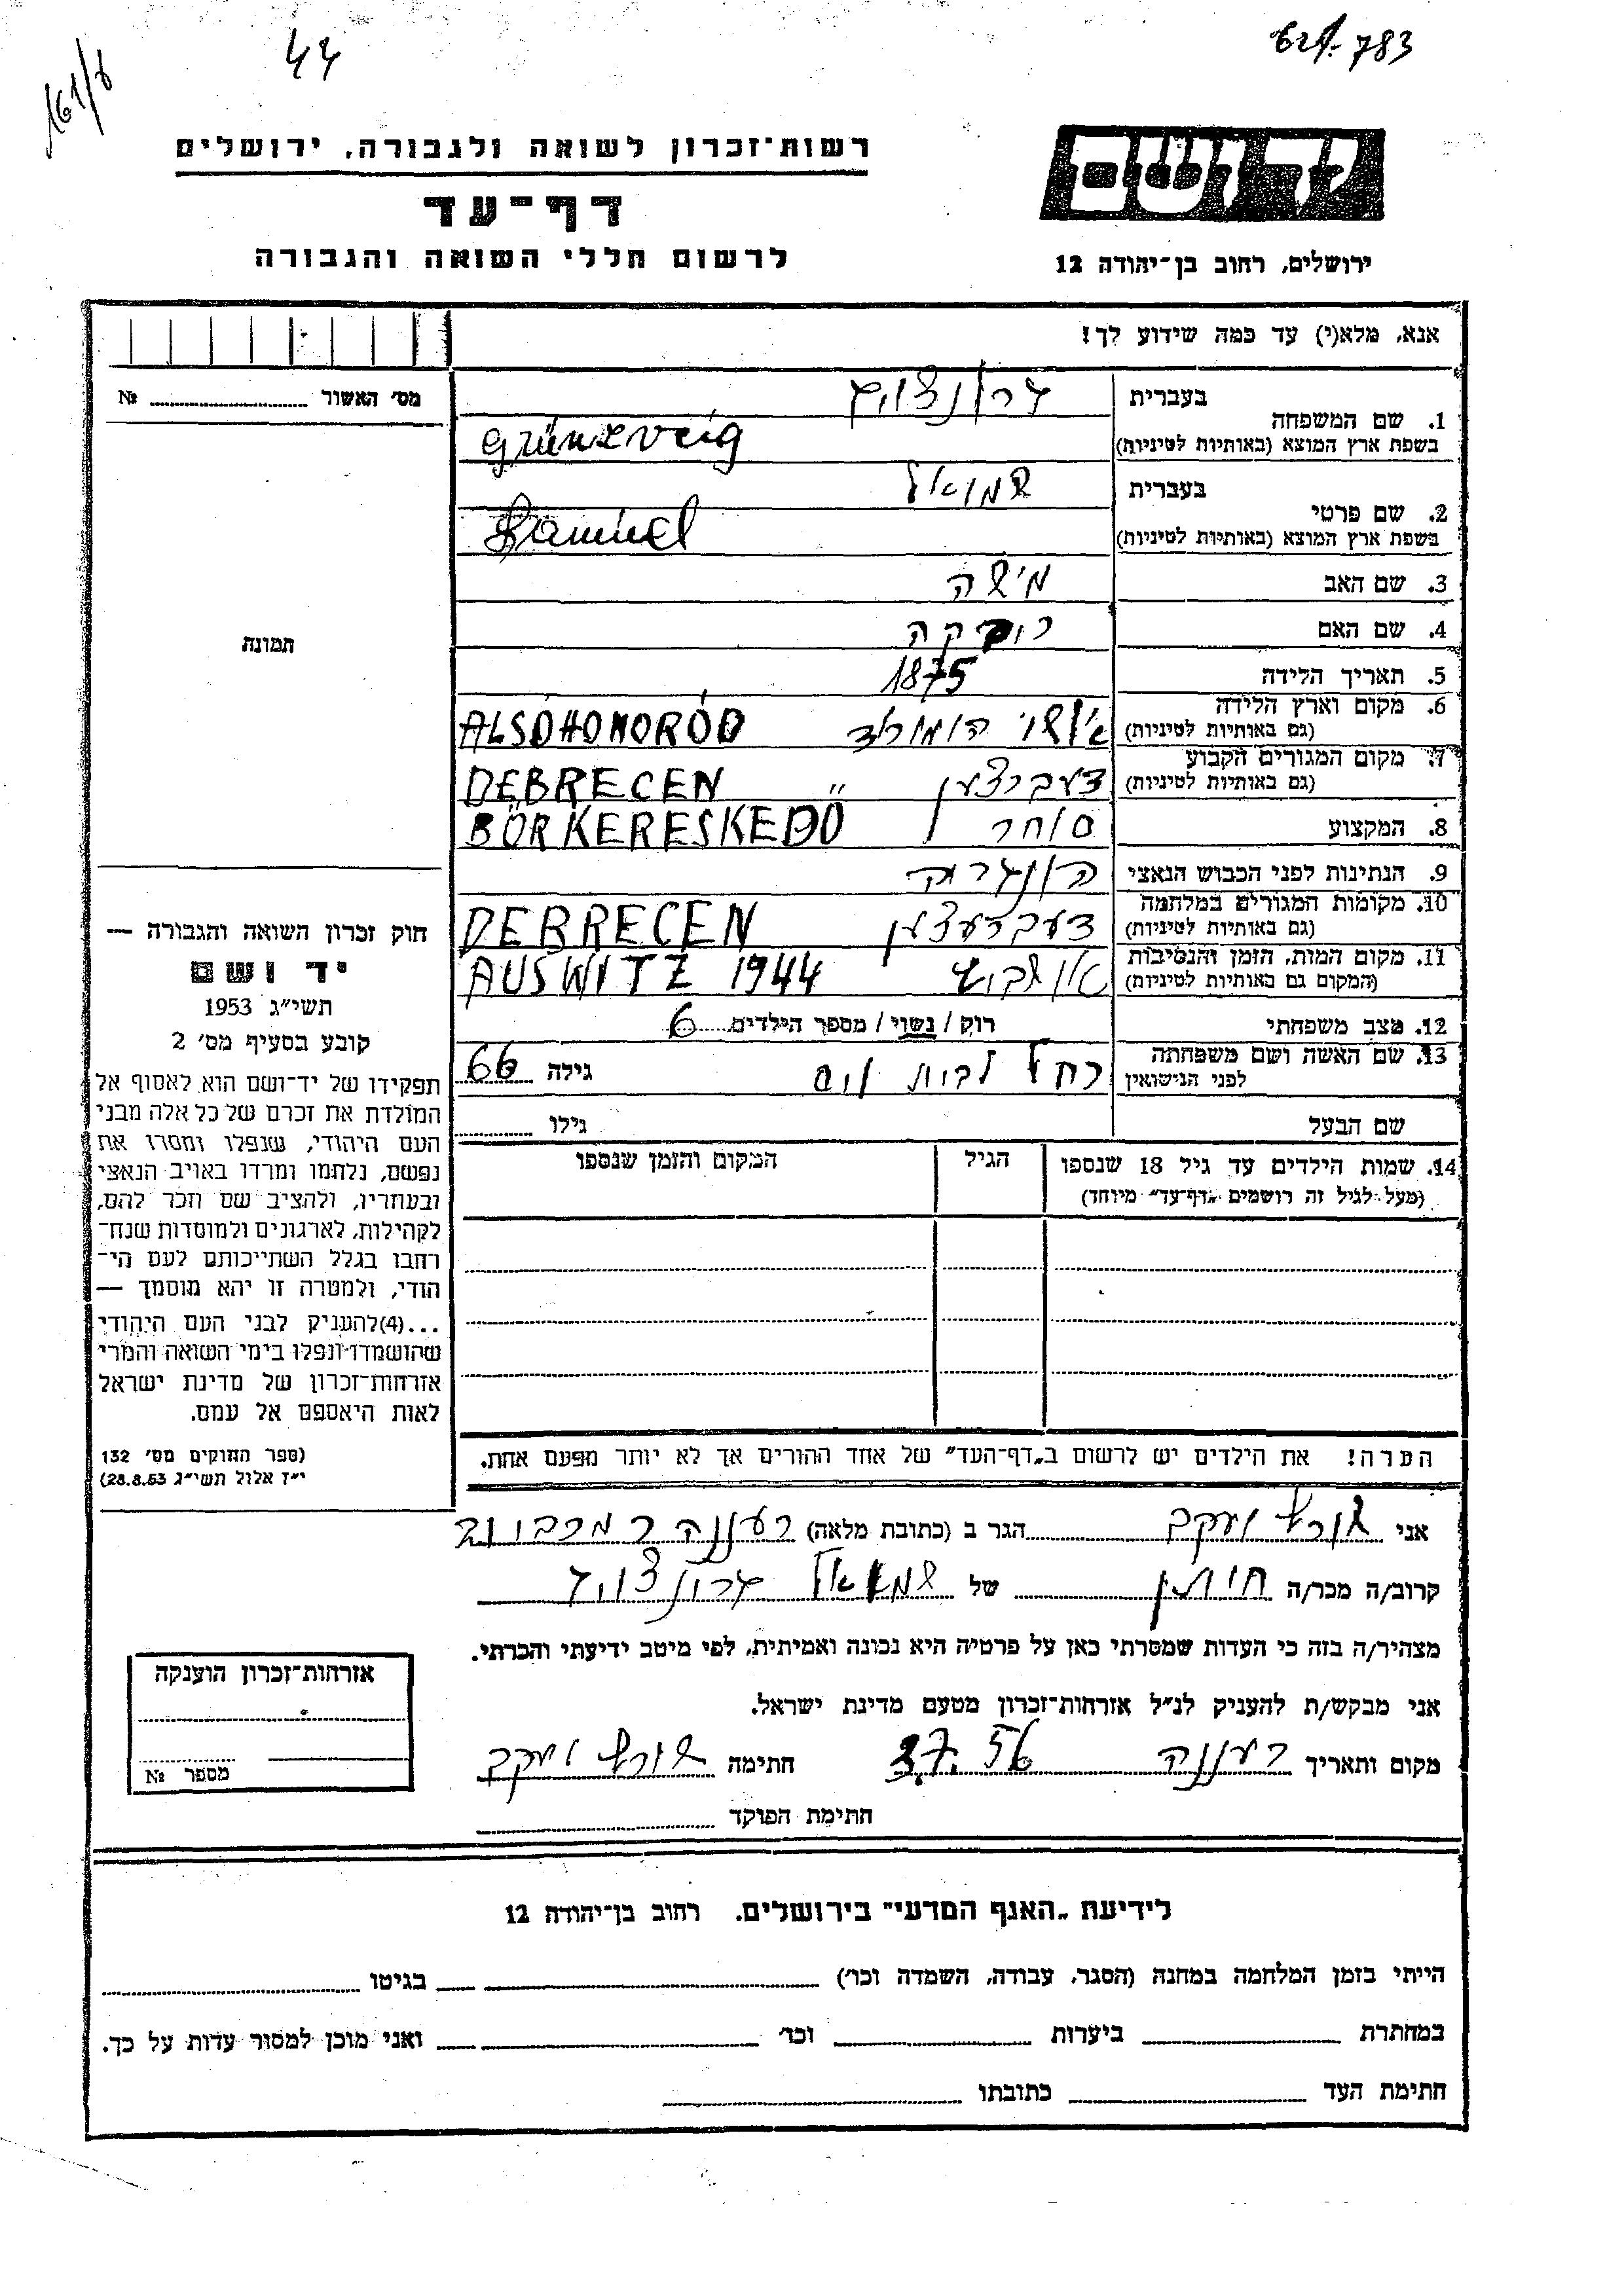 44
161/8
783
רשות־זכרון לשואה ולגבורה, ירושלים
ידושם
דף־עד
לרשום חללי השואה והגבורה
ירושלים, רחוב בן־יהודה 12
אנא, מלא(י) עד כמה שידוע לך!
מס׳ האשור № 
1. שם המשפחה
בעברית
בשפת ארץ המוצא (באותיות לטיניות)
Grünzveig
2. שם פרטי
בעברית שמואל
בשפת ארץ המוצא (באותיות לטיניות) Samuel
3. שם האב מישה
4. שם האם
5. תאריך הלידה 1875
6. מקום וארץ הלידה
(גם באותיות לטיניות) ALSÓHOMORÓD
7. מקום המגורים הקבוע
(גם באותיות לטיניות) דעברצען DEBRECEN
8. המקצוע סוחר BŐRKERESKEDŐ
9. הנתינות לפני הכבוש הנאצי
10. מקומות המגורים במלחמה
(גם באותיות לטיניות) דעברעצען DEBRECEN
11. מקום המות, הזמן והנסיבות
(המקום גם באותיות לטיניות) AUSWITZ 1944
12. מצב משפחתי רוק / נשוי / מספר הילדים 6
13. שם האשה ושם משפחתה
לפני הנישואין רחל לבית גילה 66
שם הבעל גילו
14. שמות הילדים עד גיל 18 שנספו הגיל המקום והזמן שנספו
(מעל לגיל זה רושמים „דף־עד״ מיוחד)
תמונה
חוק זכרון השואה והגבורה —
יד ושם
תשי״ג 1953
קובע בסעיף מס׳ 2
תפקידו של יד־ושם הוא לאסוף אל
המולדת את זכרם של כל אלה מבני
העם היהודי, שנפלו ומסרו את
נפשם, נלחמו ומרדו באויב הנאצי
ובעוזריו, ולהציב שם וזכר להם,
לקהילות, לארגונים ולמוסדות שנח־
רחבו בגלל השתייכותם לעם הי־
הודי, ולמטרה זו יהא מוסמך —
...(4)להעניק לבני העם היהודי
שהושמדו ונפלו בימי השואה והמרי
אזרחות־זכרון של מדינת ישראל
לאות היאספם אל עמם.
(ספר החוקים מס׳ 132
י״ז אלול תשי״ג 28.8.53)
הערה! את הילדים יש לרשום ב„דף־העד״ של אחד ההורים אך לא יותר מפעם אחת.
אני יעקב הגר ב (כתובת מלאה) רעננה
קרוב/ה מכר/ה חותן של שמואל
מצהיר/ה בזה כי העדות שמסרתי כאן על פרטיה היא נכונה ואמיתית, לפי מיטב ידיעתי והכרתי.
אני מבקש/ת להעניק לנ״ל אזרחות־זכרון מטעם מדינת ישראל.
מקום ותאריך רעננה 3.7.56 חתימה יעקב
חתימת הפוקד
אזרחות־זכרון הוענקה
מספר №
לידיעת „האגף המדעי״ בירושלים. רחוב בן־יהודה 12
הייתי בזמן המלחמה במחנה (הסגר, עבודה, השמדה וכו׳) בגיטו
במחתרת ביערות וכו׳ ואני מוכן למסור עדות על כך.
חתימת העד כתובתו